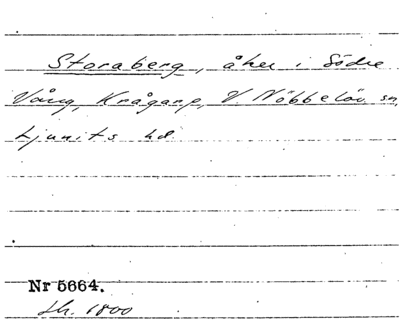 Storaberg, åker i Södre
Vång, Knågarp, V Nöbbelöv sn,
Ljunits hd
Nr 5664.
1800